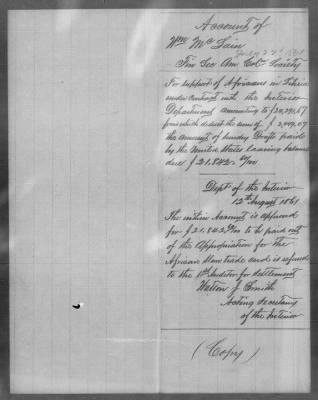 Account of
Wm McLain
July 22d 1861
Fin Sec Am Col. Society
For support of Africans in Liberia
under contract with the Interior
Department amounting to $24,291.67
from which deduct the sum of $ 2,449.07
the amount of sundry Drafts paid
by the United States leaving balance
due $21,842. 60/100
Dept of the Interior
12th August 1861
The within Account is approved
for $21,842 60/100 to be paid out
of the Appropriation for the
African Slave trade and is referred
to the 1st Auditor for settlement
Walton J Smith
Acting Secretary
of the Interior
(Copy)